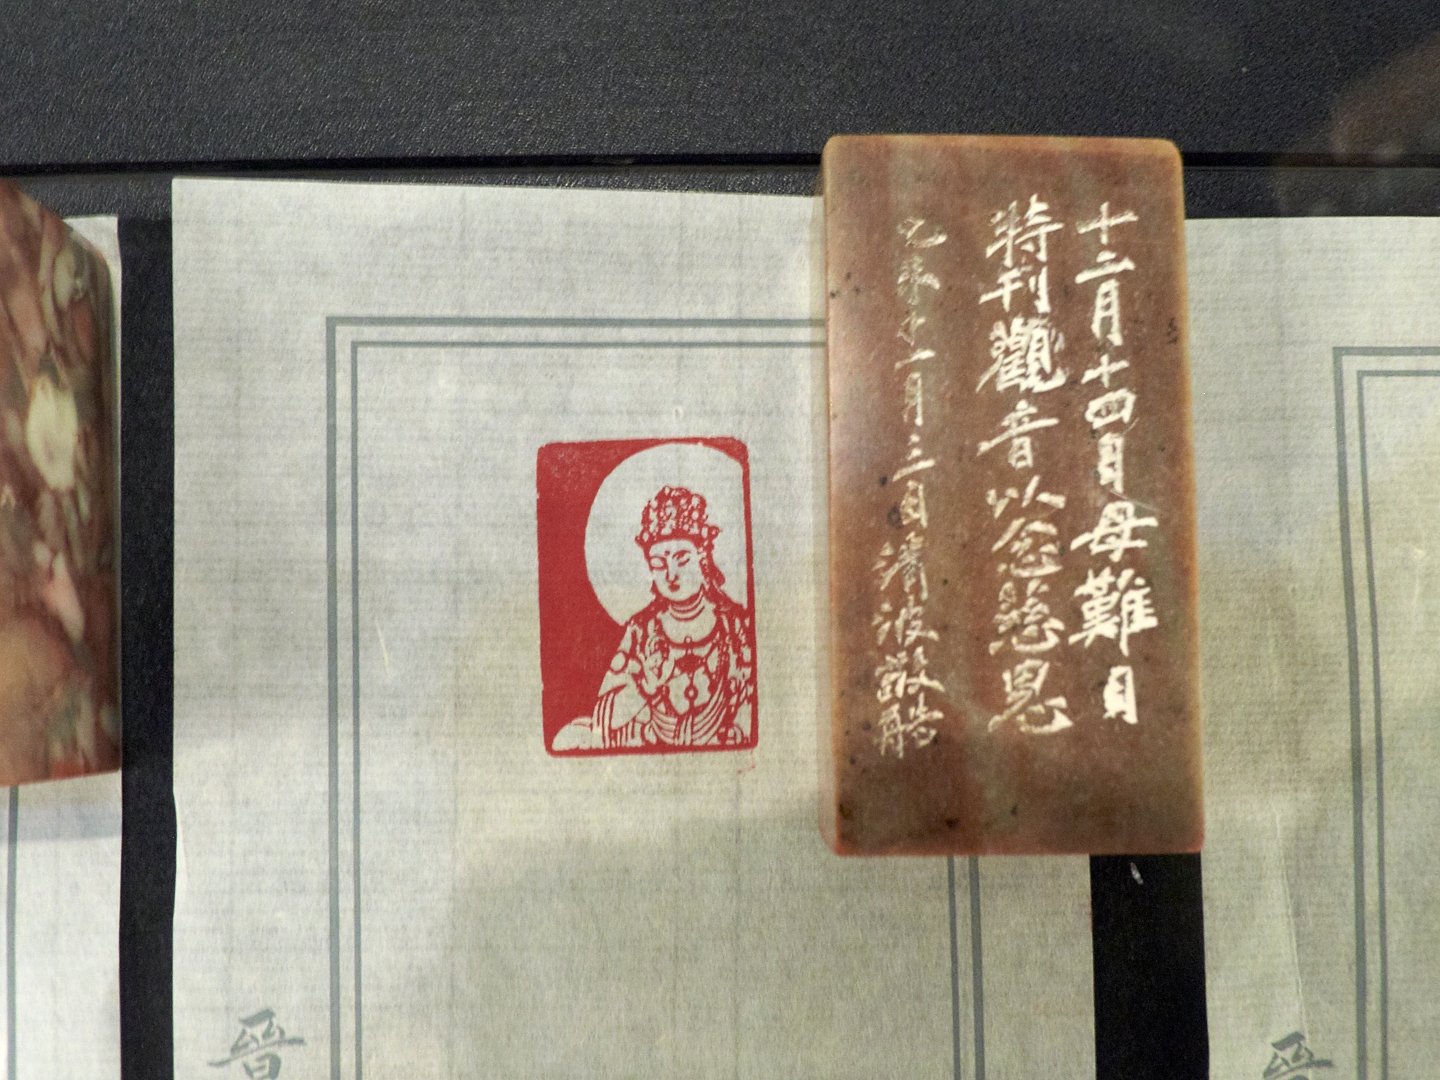 十二月十四日母難日
特刊觀音以念慈恩
十一月三日濤波
晉
晉